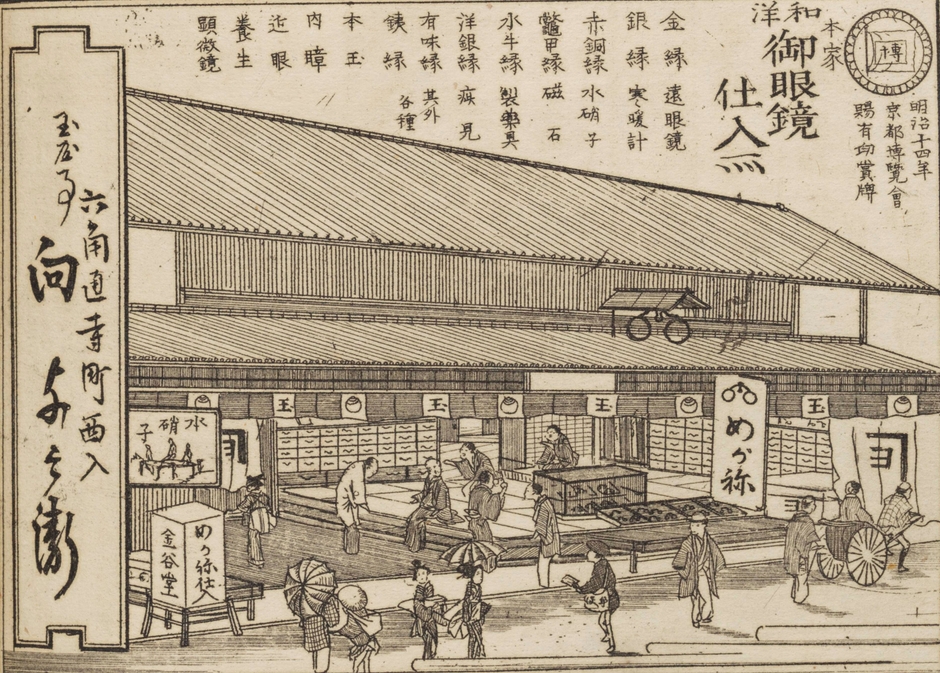 博
明治十四年
京都博覽會
賜有功賞牌
本家
和洋
御眼鏡
仕入所
金縁 遠眼鏡
銀縁 寒暖計
赤銅縁 水硝子
鼈甲縁 磁石
水牛縁 製藥具
洋銀縁 疾見
有味縁 其外
銕縁 各種
本玉
内障
近眼
養生
顕微鏡
玉
玉
玉
玉
めが祢
水硝子
めが祢仕入
金谷堂
六角通寺町西入
玉屋事
向